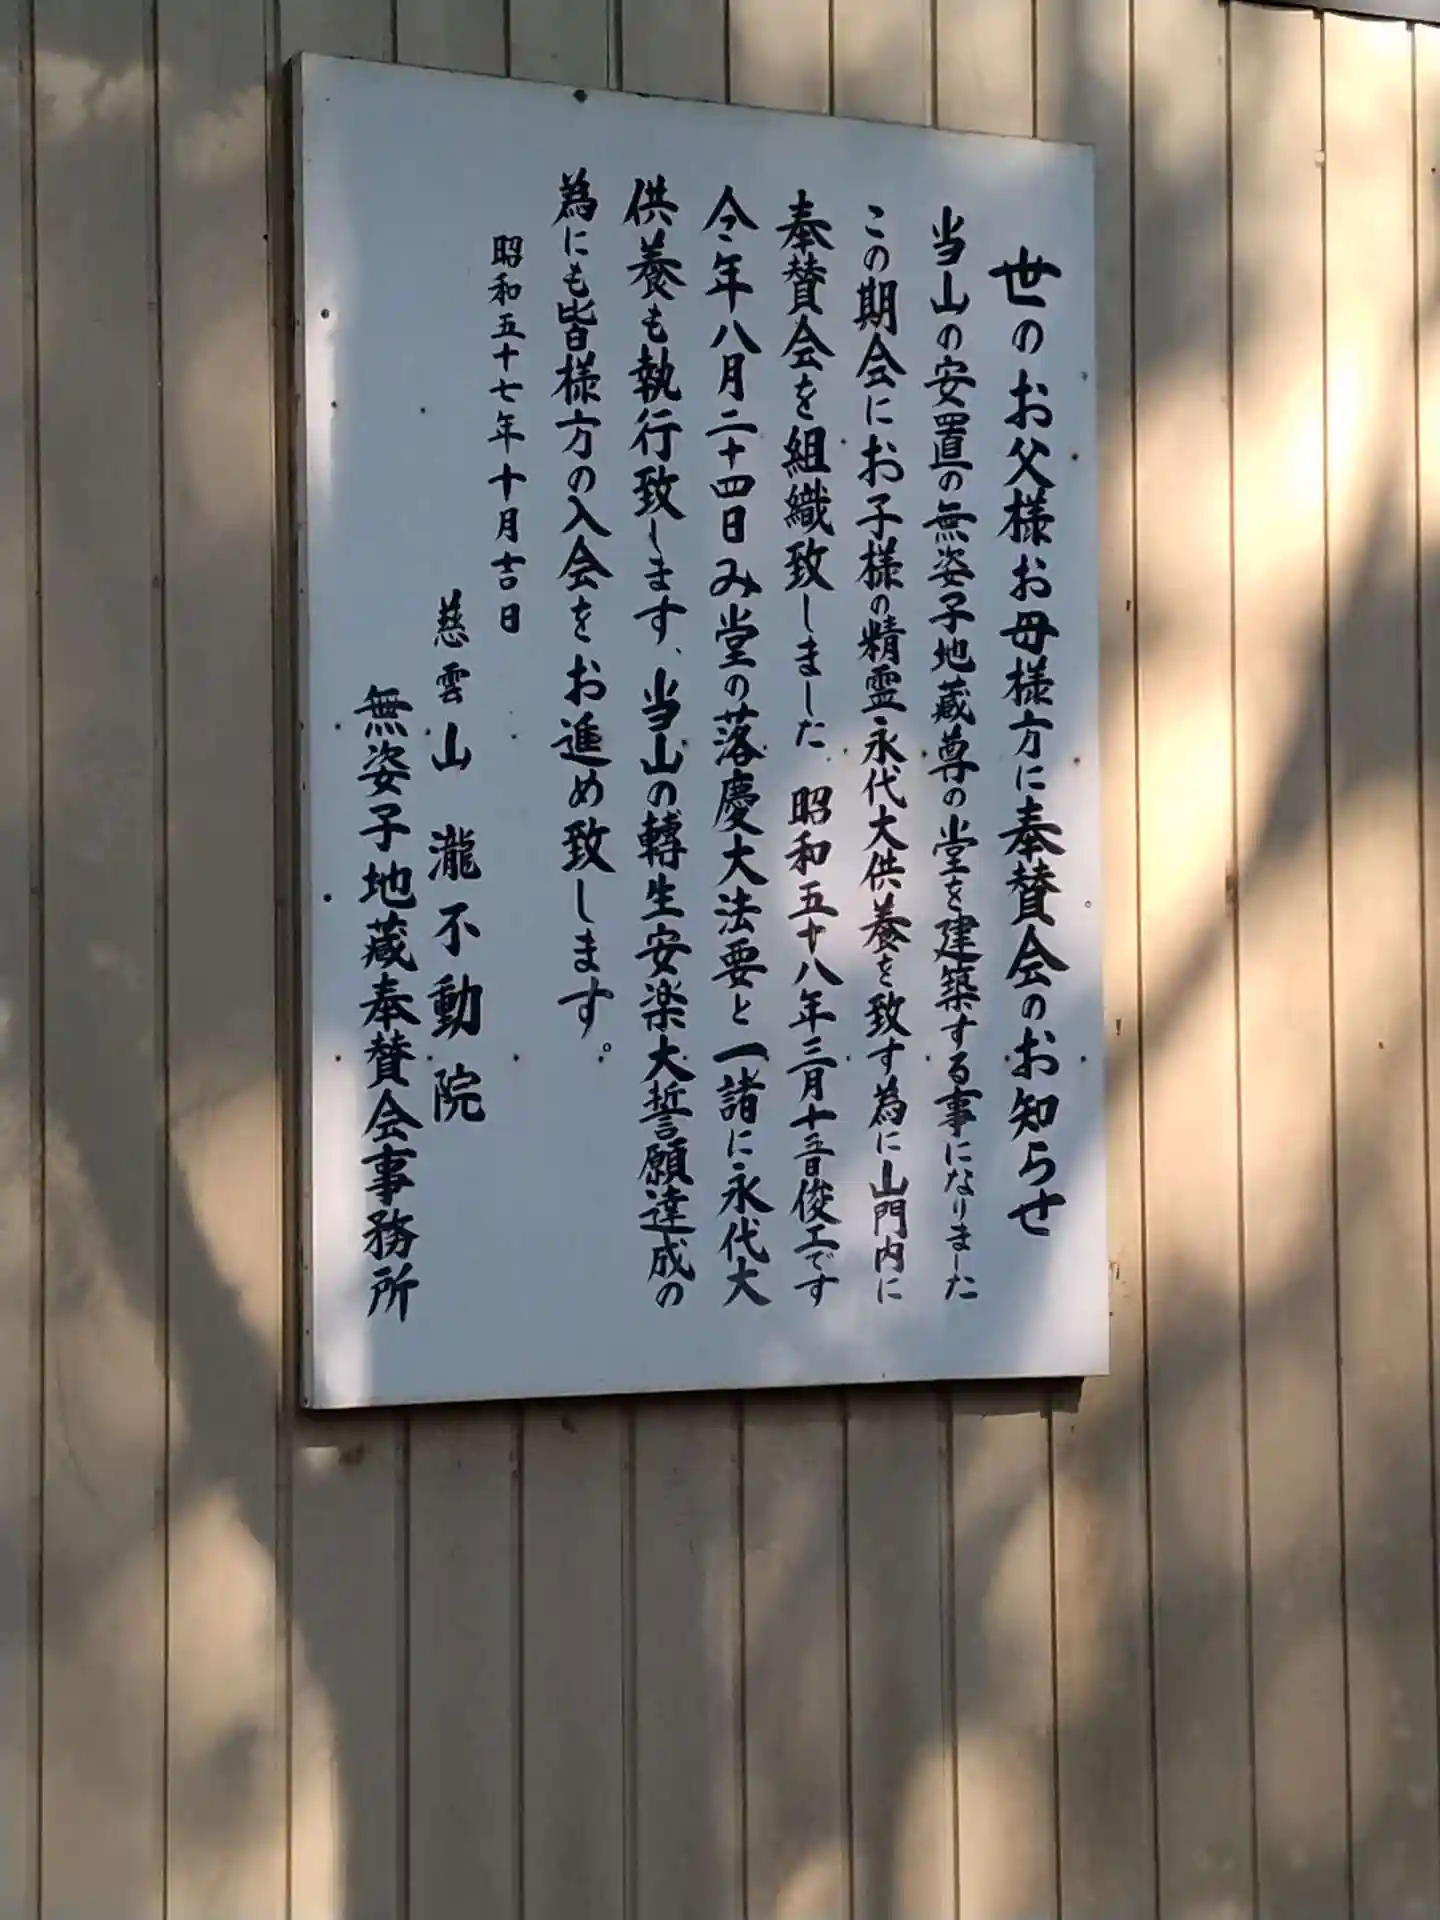 世のお父様お母様方に奉賛会のお知らせ
当山の安置の無姿子地蔵尊の堂を建築する事になりました
この期会にお子様の精霊永代大供養を致す為に山門内に
奉賛会を組織致しました。昭和五十八年三月十五日俊工です
今年八月二十四日み堂の落慶大法要と一諸に永代大
供養も執行致します、当山の轉生安楽大誓願達成の
為にも皆様方の入会をお進め致します。
昭和五十七年十月吉日
慈雲山 瀧不動院
無姿子地蔵奉賛会事務所